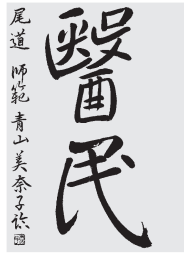 醫民
尾道 師範 青山美奈子